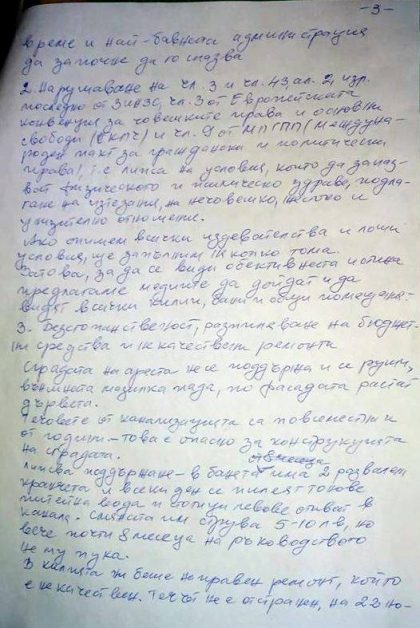 - 3 -
време и най-бавната администрация
да започне да го спазва
2. Нарушаване на чл. 3 и чл. 43, ал. 2, изр.
последно от ЗИНЗС, чл. 3 от Европейската
конвенция за човешките права и основни
свободи (ЕКПЧ) и чл. 7 от МПГПП (Междуна-
роден пакт за граждански и политически
права), т.е. липса на условия, които да запаз-
ват физическото и психическо здраве, подла-
гане на изтезания, на нечовешко, жестоко и
унизително отношение.
Ако опишем всички издевателства и лоши
условия, ще запълним няколко тома.
Затова, за да се види обективната истина
предлагаме медиите да дойдат и да
видят всички килии, бани и общи помещения-
3. Безстопанственост, разпиляване на бюджет-
ни средства и некачествени ремонти
Сградата на ареста не се поддържа и се руши,
външната мазилка пада, по фасадата растат
дървета.
Течовете от канализацията са повсеместни
от години - това е опасно за конструкцията
на сградата.
Липсва поддържане - в банята от 8 месеца има 2 развалени
кранчета и всеки ден се пилеят тонове
питейна вода и стотици левове отиват в
канала. Смяната им струва 5-10 лв, но
вече почти 8 месеца на ръководството
не му пука.
В килията ни беше направен ремонт, който
е некачествен. Течът не е отстранен, на 22 но-